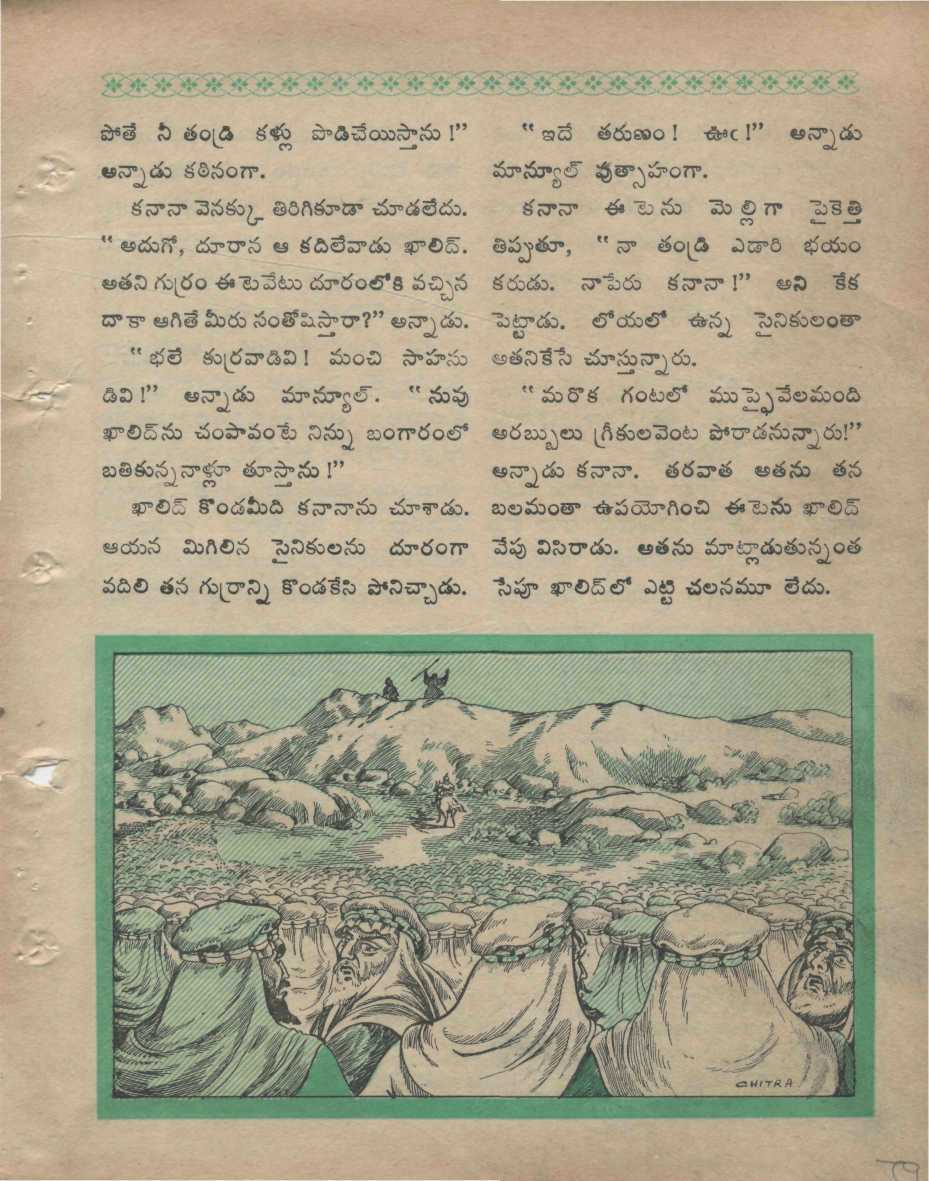 పోతే నీ తండ్రి కళ్లు పొడిచేయిస్తాను !”
అన్నాడు కఠినంగా.
కనానా వెనక్కు తిరిగికూడా చూడలేదు.
“ అదుగో, దూరాన ఆ కదిలేవాడు ఖాలిద్.
అతని గుర్రం ఈటెవేటు దూరంలోకి వచ్చిన
దాకా ఆగితే మీరు సంతోషిస్తారా?” అన్నాడు.
“ భలే కుర్రవాడివి ! మంచి సాహసు
డివి !” అన్నాడు మాన్యూల్. “ నువు
ఖాలిద్‌ను చంపావంటే నిన్ను బంగారంలో
బతికున్ననాళ్లూ తూస్తాను !”
ఖాలిద్ కొండమీది కనానాను చూశాడు.
ఆయన మిగిలిన సైనికులను దూరంగా
వదిలి తన గుర్రాన్ని కొండకేసి పోనిచ్చాడు.
“ ఇదే తరుణం ! ఊఁ !” అన్నాడు
మాన్యూల్ వుత్సాహంగా.
కనానా ఈటెను మెల్లిగా పైకెత్తి
తిప్పుతూ, “ నా తండ్రి ఎడారి భయం
కరుడు. నాపేరు కనానా !” అని కేక
పెట్టాడు. లోయలో ఉన్న సైనికులంతా
అతనికేసే చూస్తున్నారు.
“ మరొక గంటలో ముప్ఫైవేలమంది
అరబ్బులు గ్రీకులవెంట పోరాడనున్నారు!”
అన్నాడు కనానా. తరవాత అతను తన
బలమంతా ఉపయోగించి ఈటెను ఖాలిద్
వేపు విసిరాడు. అతను మాట్లాడుతున్నంత
సేపూ ఖాలిద్‌లో ఎట్టి చలనమూ లేదు.
CHITRA
79